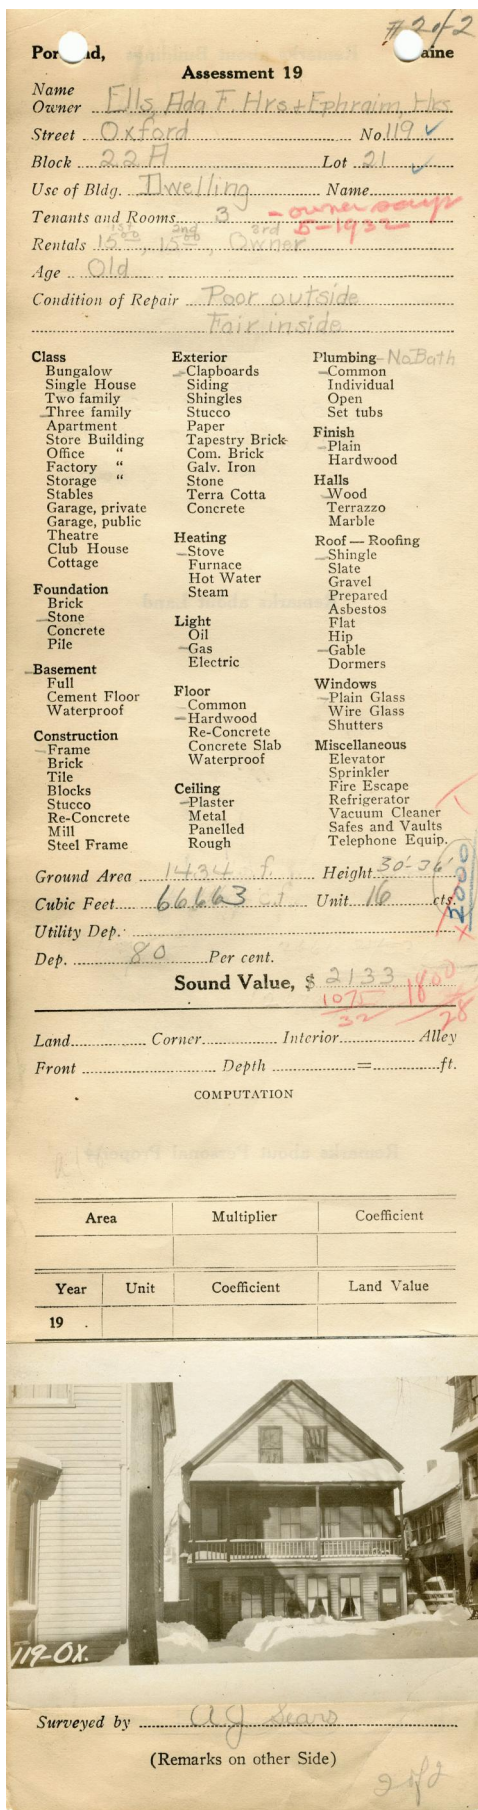 # 2 of 2
Portland, Maine
Assessment 19
Name
Owner Ells, Ada F. Hrs + Ephraim, Hrs
Street Oxford No. 119 ✓
Block 22A Lot 21 ✓
Use of Bldg. Dwelling Name
Tenants and Rooms 3 - owner says
5-1932
1st 2nd 3rd
Rentals 15 00, 15 00, Owner
Age Old
Condition of Repair Poor outside
Fair inside
Class
Bungalow
Single House
Two family
Three family
Apartment
Store Building
Office "
Factory "
Storage "
Stables
Garage, private
Garage, public
Theatre
Club House
Cottage
Foundation
Brick
Stone
Concrete
Pile
Basement
Full
Cement Floor
Waterproof
Construction
Frame
Brick
Tile
Blocks
Stucco
Re-Concrete
Mill
Steel Frame
Exterior
Clapboards
Siding
Shingles
Stucco
Paper
Tapestry Brick
Com. Brick
Galv. Iron
Stone
Terra Cotta
Concrete
Heating
Stove
Furnace
Hot Water
Steam
Light
Oil
Gas
Electric
Floor
Common
Hardwood
Re-Concrete
Concrete Slab
Waterproof
Ceiling
Plaster
Metal
Panelled
Rough
Plumbing - No Bath
Common
Individual
Open
Set tubs
Finish
Plain
Hardwood
Halls
Wood
Terrazzo
Marble
Roof — Roofing
Shingle
Slate
Gravel
Prepared
Asbestos
Flat
Hip
Gable
Dormers
Windows
Plain Glass
Wire Glass
Shutters
Miscellaneous
Elevator
Sprinkler
Fire Escape
Refrigerator
Vacuum Cleaner
Safes and Vaults
Telephone Equip.
Ground Area 1434 f. Height 30'-36'
Cubic Feet 66663 c.f. Unit 16 cts.
2000
Utility Dep.
Dep. 80 Per cent.
Sound Value, $ 2133
1075
32
1800
28
Land Corner Interior Alley
Front Depth = ft.
COMPUTATION
Area Multiplier Coefficient
Year Unit Coefficient Land Value
19 .
119-OX.
Surveyed by A J Sears
(Remarks on other Side)
2 of 2